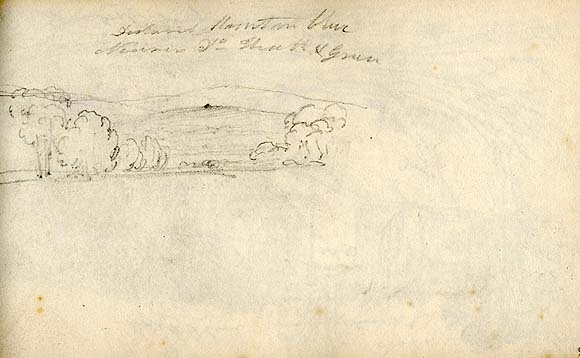 Distant Mountain blue
Nearer Do Heath & Green